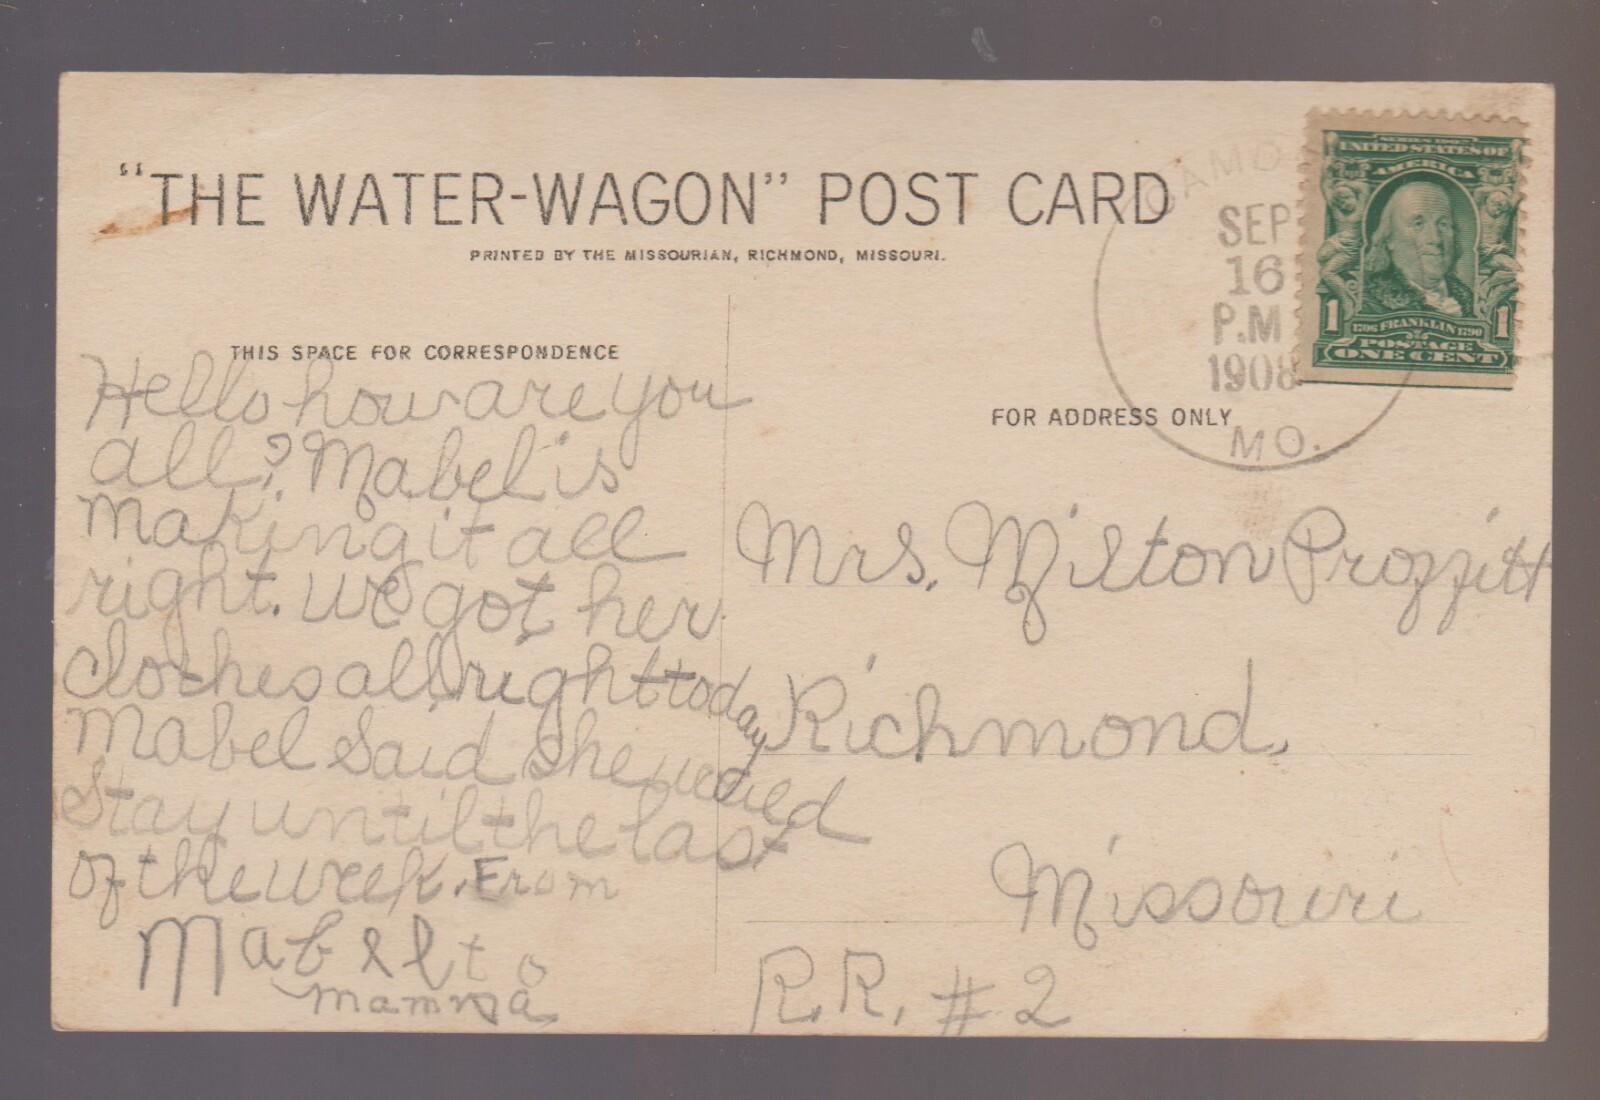 "THE WATER-WAGON" POST CARD
PRINTED BY THE MISSOURIAN, RICHMOND, MISSOURI.
THIS SPACE FOR CORRESPONDENCE
Hello how are you
all? Mabel is
making it all
right. we got her
clothes all right today
Mabel said she would
stay until the last
of the week. From
Mabel to
mamma
CAMD
SEP
16
P.M
1908
MO.
SERIES 1902
UNITED STATES OF
AMERICA
1 1
1706 FRANKLIN 1790
POSTAGE
ONE CENT
FOR ADDRESS ONLY
Mrs. Milton Proffitt
Richmond,
Missouri
R.R. #2